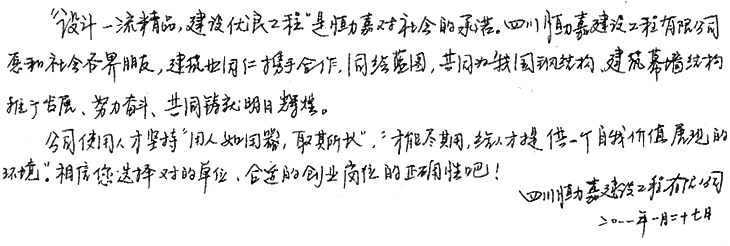 “设计一流精品,建设优良工程”是恒励嘉对社会的承诺。四川恒励嘉建设工程有限公司
愿和社会各界朋友,建筑业同仁携手合作,同绘蓝图,共同为我国钢结构、建筑幕墙结构
推广发展、努力奋斗、共同铸就明日辉煌。
公司使用人才坚持“用人如用器,取其所长”,“才能尽其用,给人才提供一个自我价值展现的
环境”。相信您选择对的单位、合适的创业岗位的正确性吧!
四川恒励嘉建设工程有限公司
二〇一一年一月二十七日